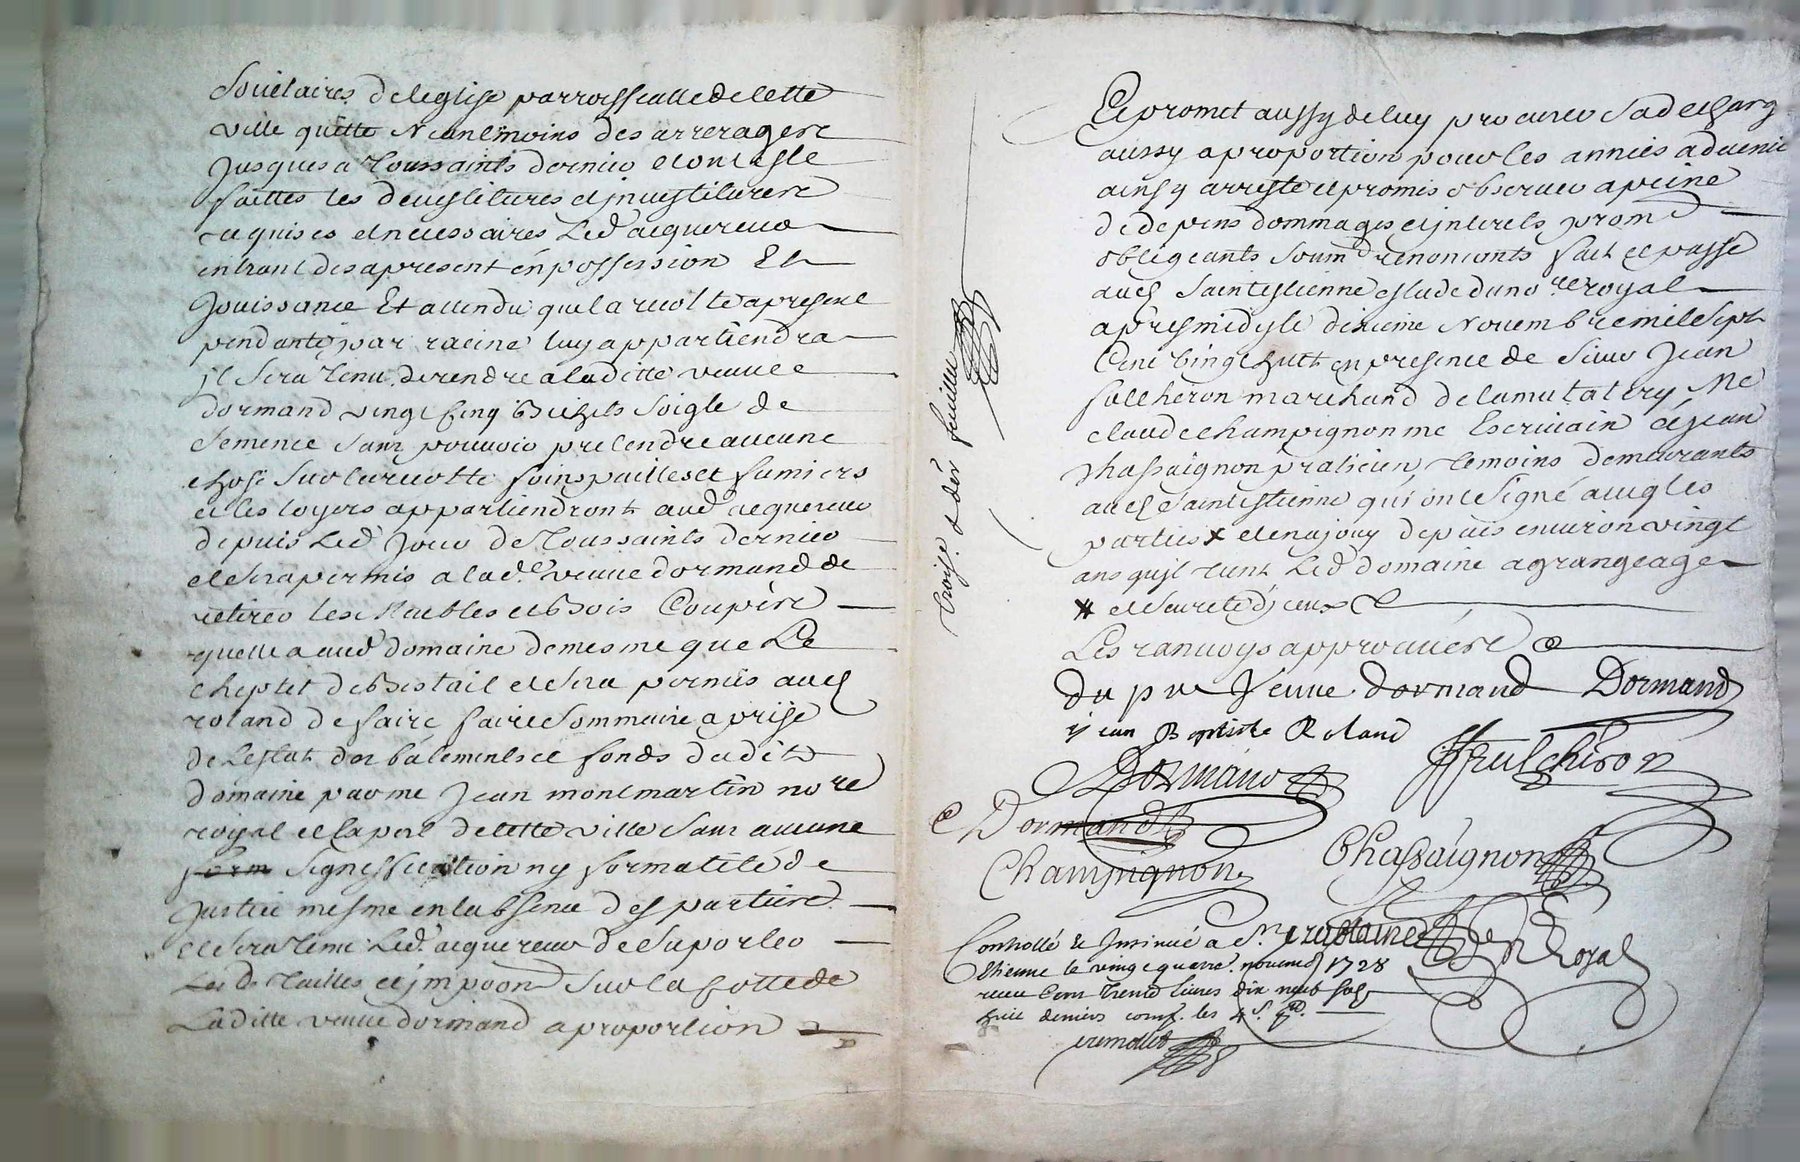 Societaires de leglise parroissialle de cette
ville quitte Neanlmoins des arrerages
Jusques a Toussaints dernier et ont este
faittes les deuestitures et jnuestitures
requises et necessaires Led acquereur
entrant des apresent en possession Et
Jouissance Et attendu que la recolte apresent
pendante par racine luy appartiendra
jl Sera tenu de rendre a laditte veuue
dormand vingt cinq bichets Soigle de
Semence Sans pouuoir pretendre aucune
chose Sur la recolte foins pailles et fumiers
et les loyers appartiendront aud acquereur
depuis Led Jour de Toussaints dernier
et Sera permis a lad.e veuue dormand de
retirer les Meubles et Bois Coupés
quelle a aud domaine de mesme que Le
Cheptet de Bestail et Sera permis aud
roland de faire faire Sommaire aprise
de Lestat des batements et fonds dudit
domaine par me Jean montmartin nore
royal et expert de cette ville Sans aucune
form Signiffication ny formalité de
Justice mesme en labsence des parties
et Sera tenu Led acquereur de Suporter
Les d Tailles et jmpoon Sur la Cotte de
Laditte veuue dormand a proportion
troise. & der feuillet
Et promet aussy de luy procurer Sa decharg
aussy a proportion pour les années aduenir
ainsy arresté et promis obseruer a peine
de depens dommages et jnterets prom
obligeants Soum renonconts fait et passé
aud Saint estienne estude du nore royal
apres midy le dixieme Nouembre mil Sept
Cent vingt huit en presence de Sieur Jean
fulcheron marchand de la mulatery Me
claude champignon me Escriuain et jean
chassaignon praticien temoins demeurants
aud Saint estienne qui ont Signé auec les
parties x et en a jouy depuis enuiron vingt
ans quil tient Led domaine a grangeage
x et Seureté d'jceux
Les ranuoys approuués
du pre Veuue dormand Dormand
jean Baptiste Roland
Dormand ffulcheron
C Dormand
Champignon Chassaignon
Controllé & Jnsinué a St
Etienne le vingt quatre nouemb 1728
receu Cent trente liures dix neuf Sols
huit deniers comp. les 4 s. p
cremollet Royal